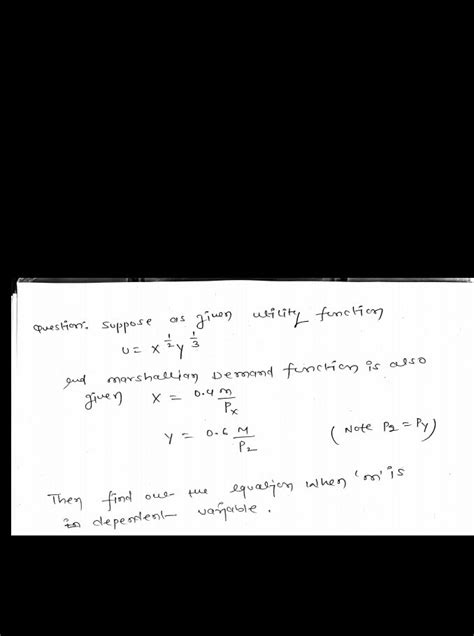 Question. Suppose as given utility function
U = x^{1/2} y^{1/3}
and marshallian Demand function is also
given x = 0.4 m/P_x
y = 0.6 M/P_2 (Note P_2 = P_y)
Then find out the equation when 'm' is
dependent variable.